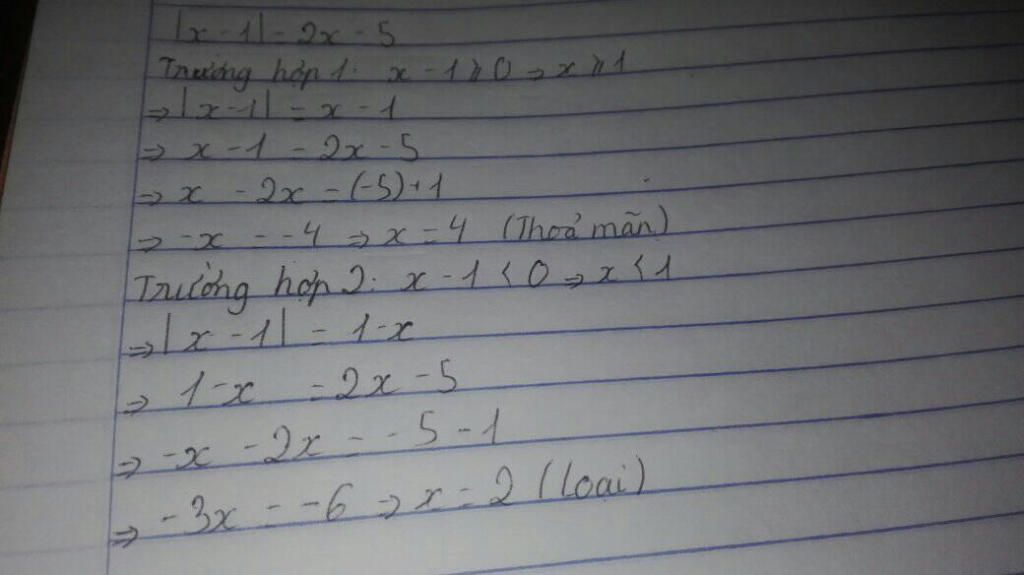 |x - 1| = 2x - 5
Trường hợp 1: x - 1 ≥ 0 ⇒ x ≥ 1
⇒ |x - 1| = x - 1
⇒ x - 1 = 2x - 5
⇒ x - 2x = (-5) + 1
⇒ -x = -4 ⇒ x = 4 (Thoả mãn)
Trường hợp 2: x - 1 < 0 ⇒ x < 1
⇒ |x - 1| = 1 - x
⇒ 1 - x = 2x - 5
⇒ -x - 2x = -5 - 1
⇒ -3x = -6 ⇒ x = 2 (loại)